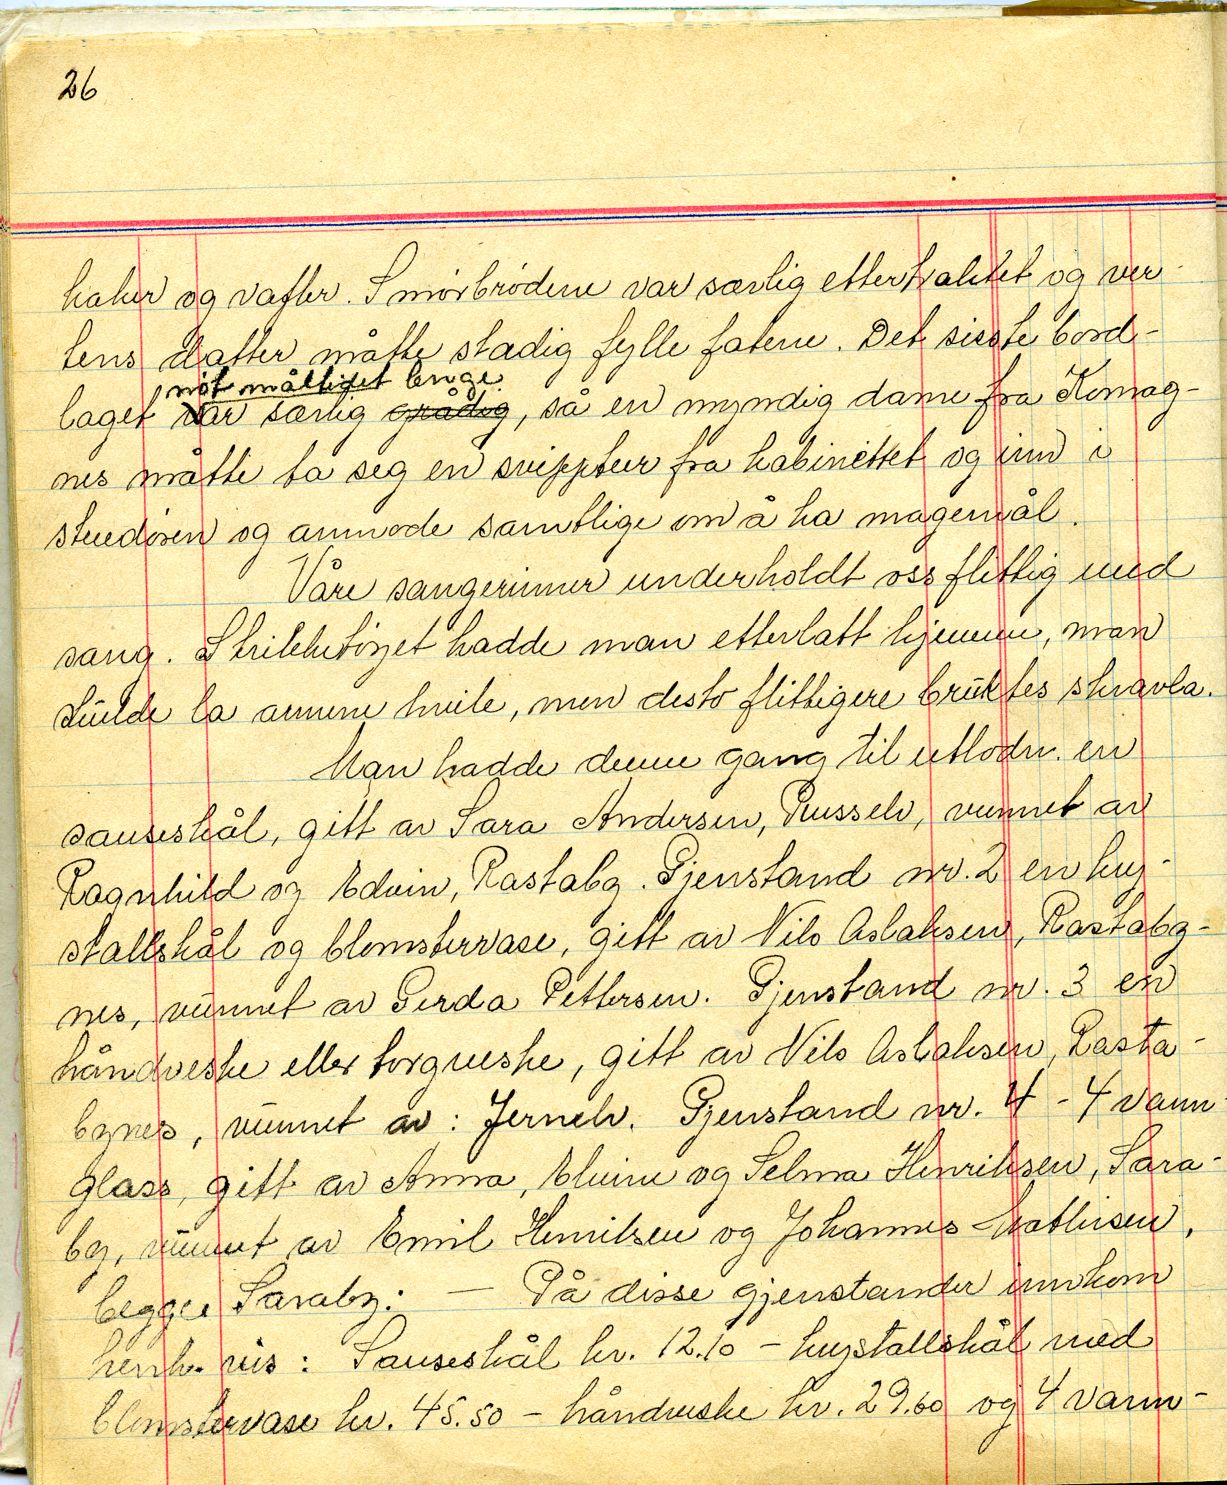 26
kaker og vafler. Smörbrödene var særlig ettertraktet og ver-
tens datter måtte stadig fylle fatene. Det siste bord-
nöt måltidet lenge.
laget var særlig grådig, så en myndig dame fra Komag-
nes måtte ta seg en svipptur fra kabinettet og inn i
stuedören og anmode samtlige om å ha magemål.
Våre sangerinner underholdt oss flittig med
sang. Strikketöyet hadde man etterlatt hjemme, man
skulde la armene hvile, men desto flittigere bruktes skravla.
Man hadde denne gang til utlodn. en
sauseskål, gitt av Sara Andersen, Russelv, vunnet av
Ragnhild og Edvin, Rastaby. Gjenstand nr. 2 en kry-
stallskål og blomstervase, gitt av Nils Aslaksen, Rastaby-
nes, vunnet av Gerda Pettersen. Gjenstand nr. 3 en
håndveske eller torgveske, gitt av Nils Aslaksen, Rasta-
bynes, vunnet av: Jernelv. Gjenstand nr. 4 - 4 vann-
glass, gitt av Anna, Eluine og Selma Henriksen, Sara-
by, vunnet av Emil Henriksen og Johannes Mathisen,
begge Saraby: — På disse gjenstander innkom
henh. vis: Sauseskål kr. 12.10 - krystallskål med
blomstervase kr. 45.50 - håndveske kr. 29.60 og 4 vann-